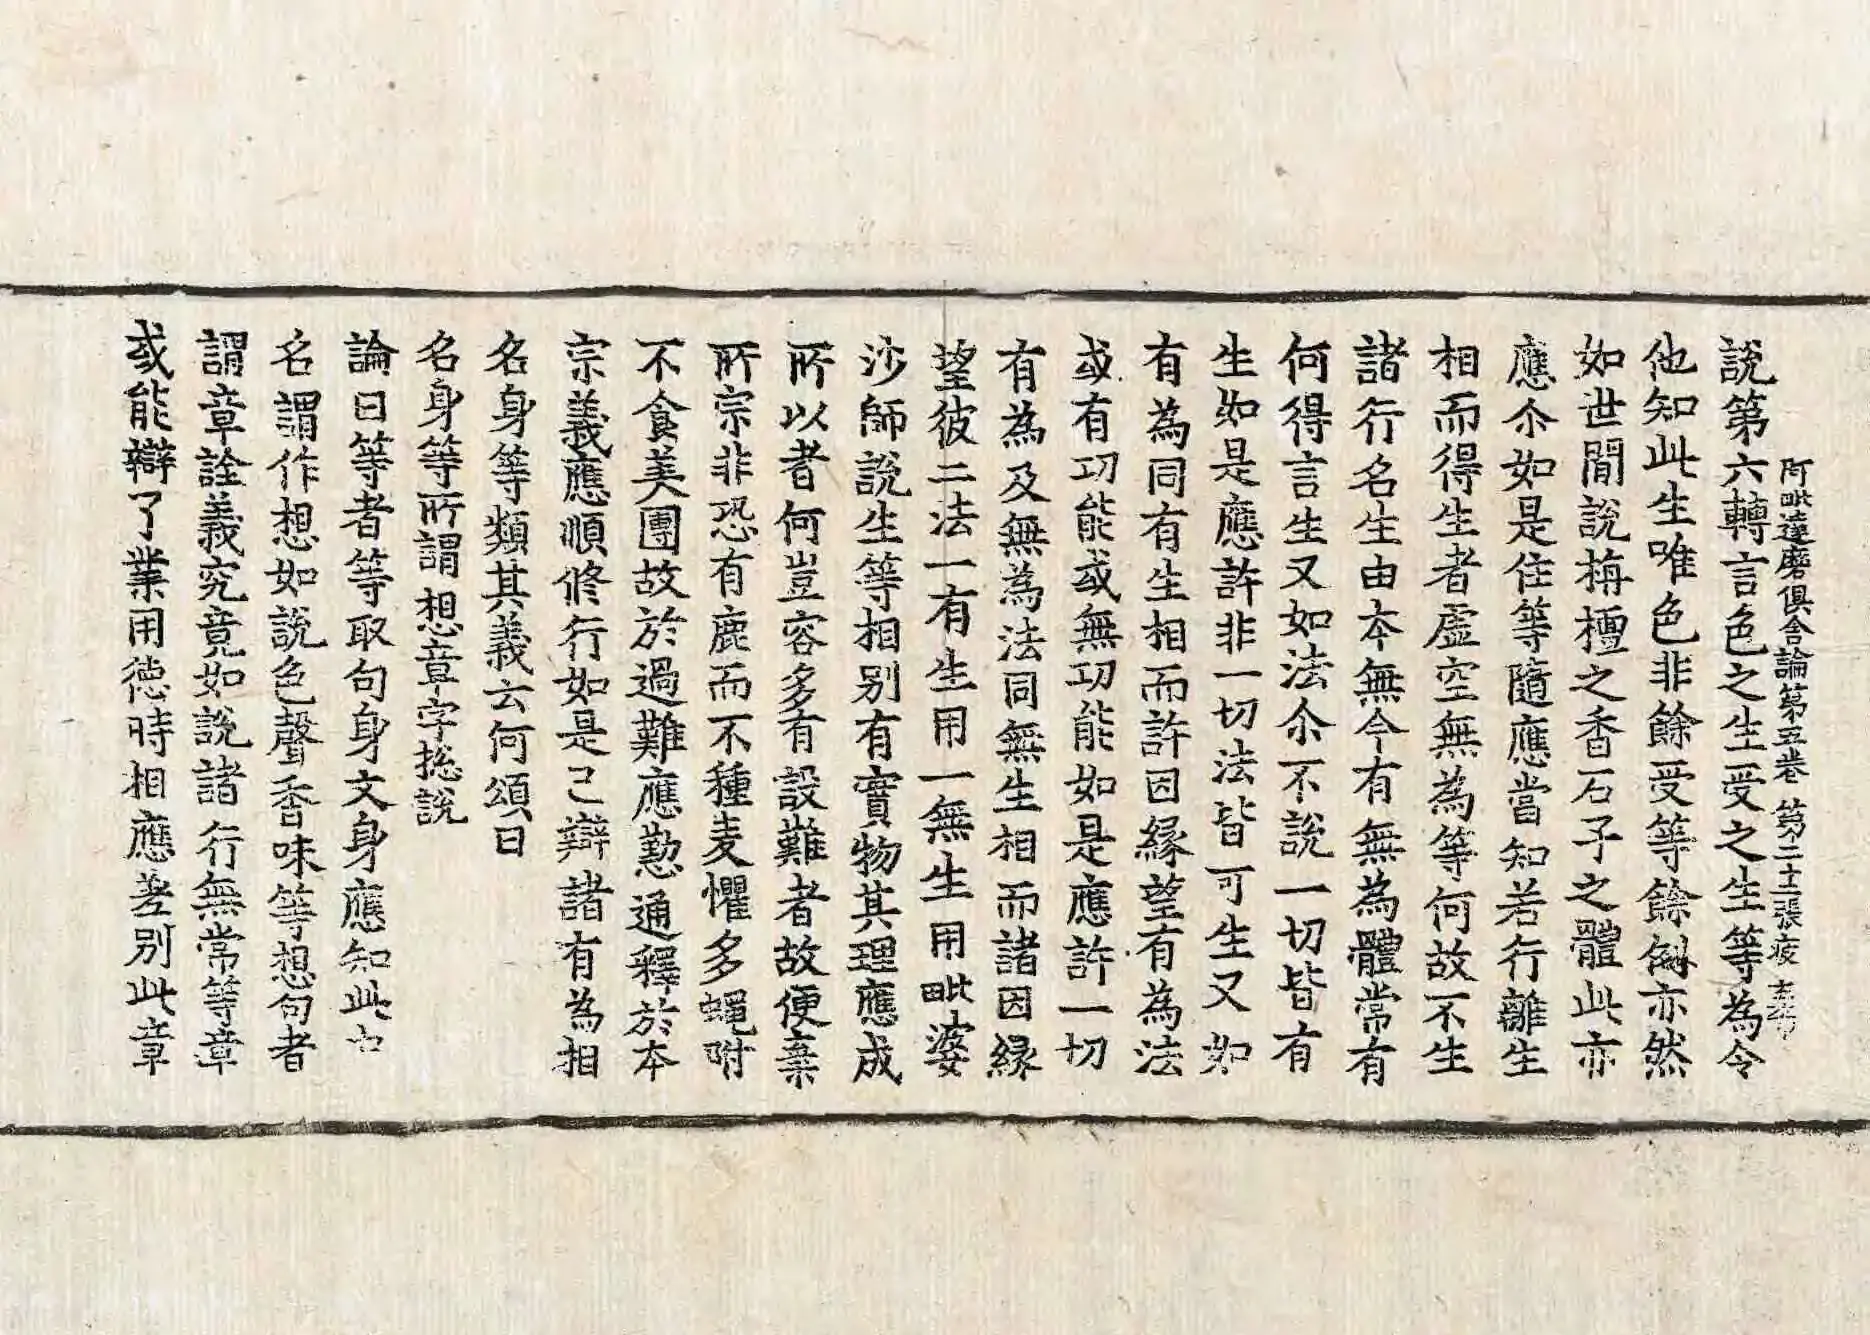 阿毗達磨俱舍論第五卷 第二十二張 疲
說第六轉言色之生受之生等為令
他知此生唯色非餘受等餘例亦然
如世間說栴檀之香石子之體此亦
應尒如是住等隨應當知若行離生
相而得生者虛空無為等何故不生
諸行名生由本無今有無為體常有
何得言生又如法尒不說一切皆有
生如是應許非一切法皆可生又如
有為同有生相而許因緣望有為法
或有功能或無功能如是應許一切
有為及無為法同無生相而諸因緣
望彼二法一有生用一無生用毗婆
沙師說生等相別有實物其理應成
所以者何豈容多有設難者故便棄
所宗非恐有鹿而不種麦懼多蝇附
不食美團故於過難應懃通釋於本
宗義應順修行如是已辯諸有為相
名身等類其義云何頌曰
名身等所謂 想章字捴說
論曰等者等取句身文身應知此中
名謂作想如說色聲香味等想句者
謂章詮義究竟如說諸行無常等章
或能辯了業用德時相應差別此章